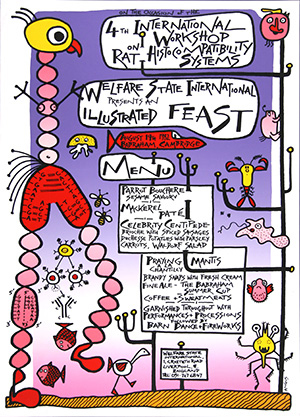 ON THE OCCASION OF THE
4TH INTERNATIONAL
WORKSHOP
ON RAT HISTOCOMPATIBILITY
SYSTEMS
WELFARE STATE INTERNATIONAL
PRESENTS AN
ILLUSTRATED FEAST
AUGUST 19TH 1982
BABRAHAM, CAMBRIDGE
MENU
PARROT BOUCHEREE
SESAME SAVOURY
MACKEREL
PATÉ
CELEBRITY CENTIPEDE-
BROCHE WITH SPICED SAUSAGES
DUCHESSE POTATOES WITH PARSLEY
CARROTS, WALDORF SALAD
PRAYING MANTIS
CHANTILLY
BRANDY SNAPS WITH FRESH CREAM
FINE ALE - THE BABRAHAM
SUMMER CUP
COFFEE + SWEETMEATS
GARNISHED THROUGHOUT WITH
PERFORMANCES & PROCESSIONS
FOLLOWED BY
BARN DANCE + FIREWORKS
WELFARE STATE
INTERNATIONAL
LIVERPOOL
ENGLAND